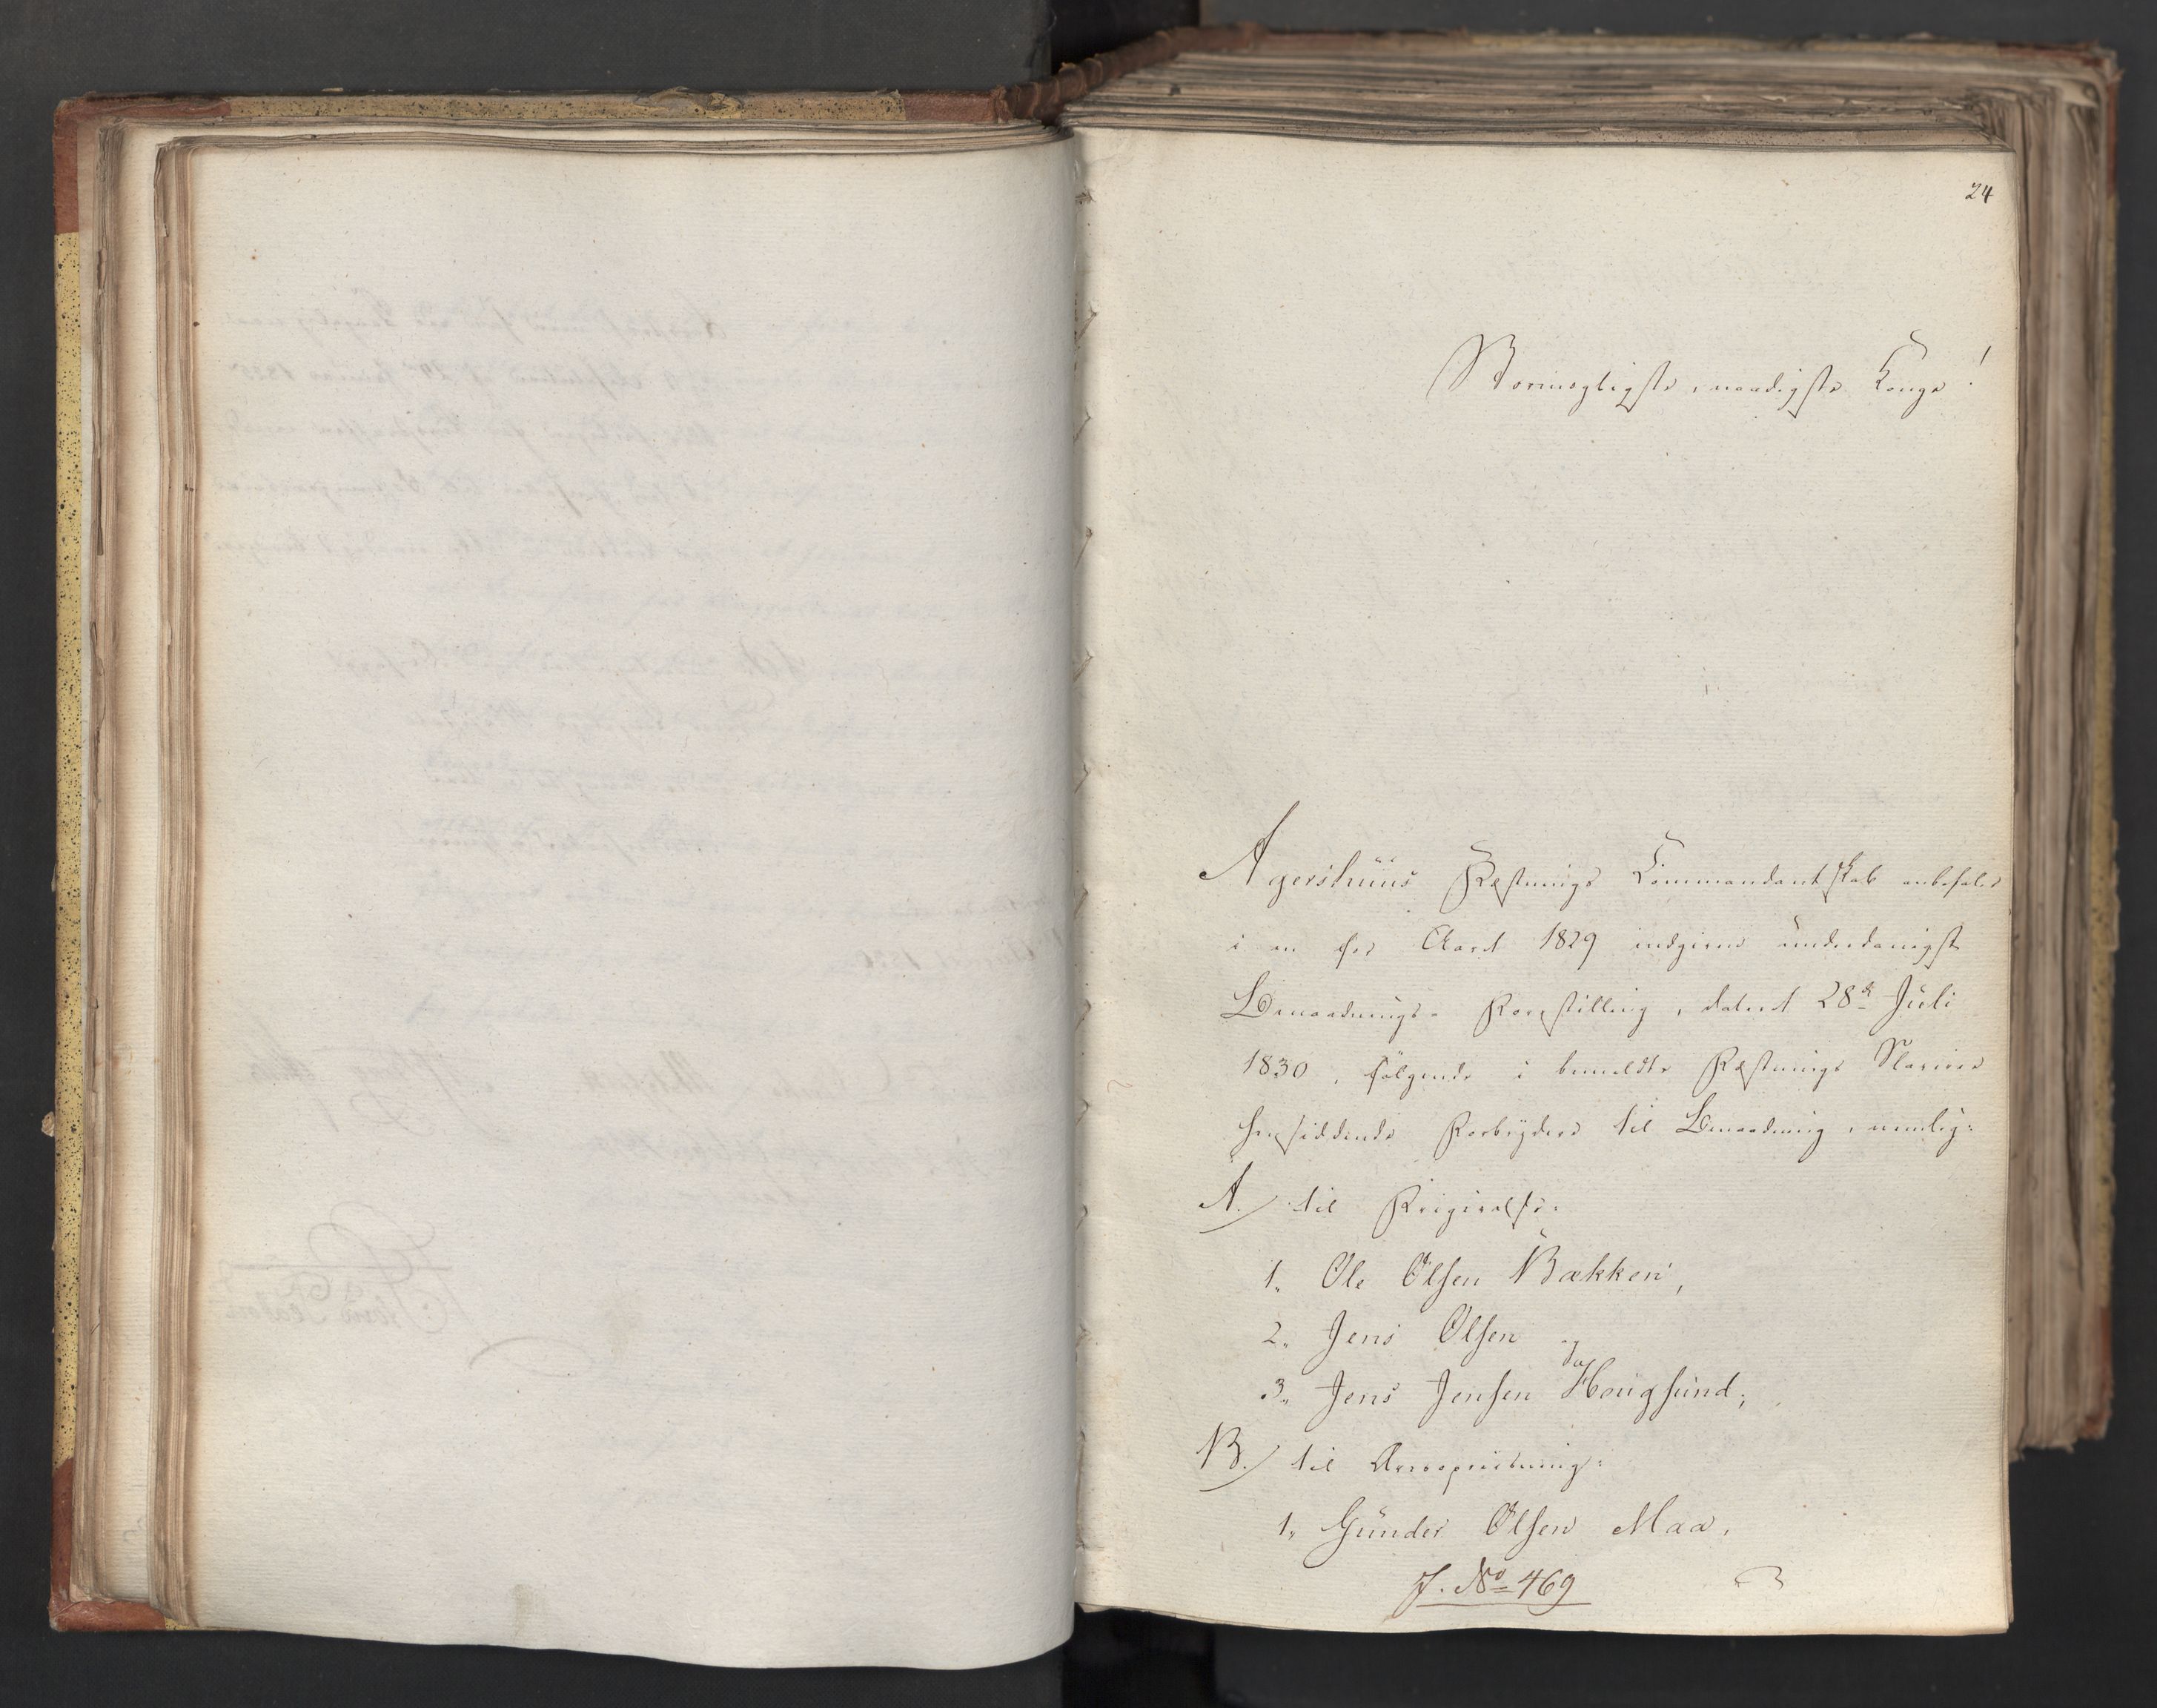 24
Stormægtigste, naadigste Konge!
Agershuus Fæstnings Commandantskab anbefaler
i en for Aaret 1829 indgiven underdanigst
Benaadnings-Forestilling, dateret 28de Juli
1830, følgende i bemeldte Fæstnings Slaverie
hensiddende Forbrydere til Benaadning, nemlig:
A./ til Frigivelse:
1, Ole Olsen Bakken,
2, Jens Olsen og
3, Jens Jensen Hougsund;
B./ til
1, Gunder Olsen Maa,
J. No 469